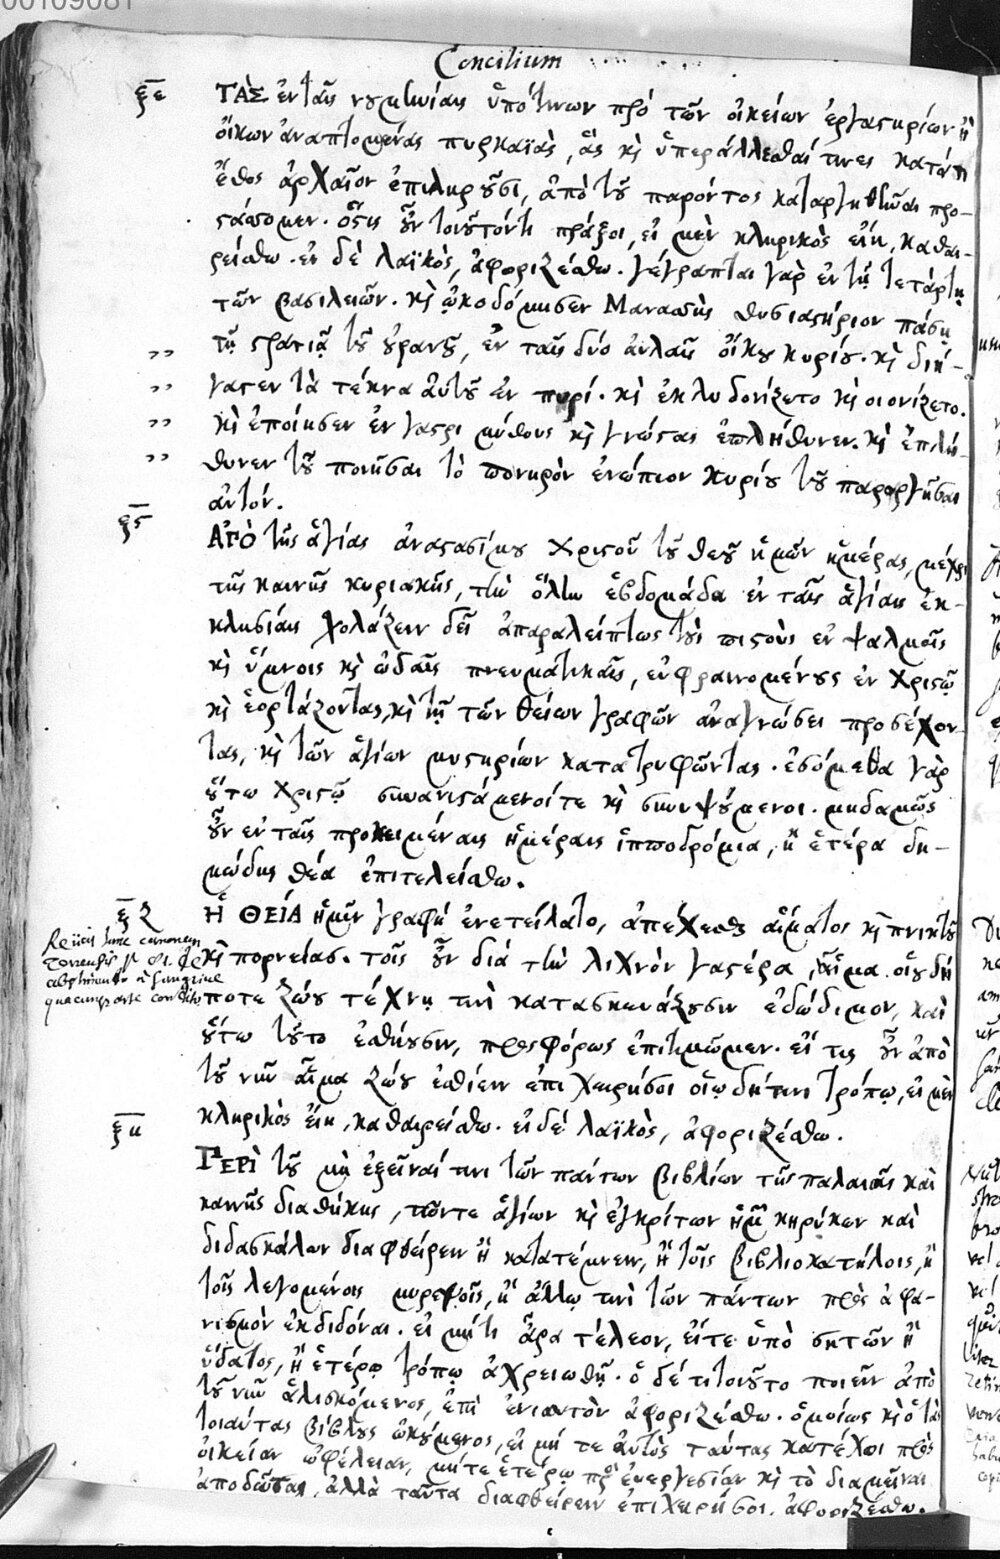 00109081
Concilium
ξε ΤΑΣ ἐν ταῖς νουμηνίαις ὑπό τινων πρὸ τῶν οἰκείων ἐργαστηρίων ἢ
οἴκων ἀναπτομένας πυρκαϊάς, ἃς καὶ ὑπεράλλεσθαί τινες κατά τι
ἔθος ἀρχαῖον ἐπιχειροῦσι, ἀπὸ τοῦ παρόντος καταργηθῆναι προ-
στάσσομεν. ὅστις οὖν τοιοῦτόν τι πράξοι, εἰ μὲν κληρικὸς εἴη, καθαι-
ρείσθω. εἰ δὲ λαϊκὸς, ἀφοριζέσθω. γέγραπται γὰρ ἐν τῇ τετάρτῃ
τῶν βασιλειῶν. καὶ ᾠκοδόμησεν Μανασσῆς θυσιαστήριον πάσῃ
τῇ στρατιᾷ τοῦ οὐρανοῦ, ἐν ταῖς δύο αὐλαῖς οἴκου κυρίου. καὶ διή-
" γαγεν τὰ τέκνα αὐτοῦ ἐν πυρί. καὶ ἐκλυδονίζετο καὶ οἰονίζετο.
" καὶ ἐποίησεν ἐν γαστρι μύθους καὶ γνώστας ἐπλήθυνεν. καὶ ἐπλή-
" θυνεν τοῦ ποιῆσαι τὸ πονηρὸν ἐνώπιον κυρίου τοῦ παροργῆσαι
" αὐτόν.
ξς ΑΠΟ τῆς ἁγίας ἀναστασίμου Χριστοῦ τοῦ θεοῦ ἡμῶν ἡμέρας, μέχρι
τῆς καινῆς κυριακῆς, τὴν ὅλην ἑβδομάδα ἐν ταῖς ἁγίαις ἐκ-
κλησίαις σχολάζειν δεῖ ἀπαραλείπτως τοὺς πιστοὺς ἐν ψαλμοῖς
καὶ ὕμνοις καὶ ᾠδαῖς πνευματικαῖς, εὐφραινομένους ἐν Χριστῷ
καὶ ἑορτάζοντας, καὶ τῇ τῶν θείων γραφῶν ἀναγνώσει προσέχον-
τας, καὶ τῶν ἁγίων μυστηρίων κατατρυφῶντας. ἐσόμεθα γὰρ
οὕτω Χριστῷ συνανιστάμενοί τε καὶ συνυψούμενοι. μηδαμῶς
οὖν ἐν ταῖς προκειμέναις ἡμέραις ἱπποδρόμια, ἢ ἑτέρα δη-
μώδης θέα ἐπιτελείσθω.
ξζ Ἡ ΘΕΙΑ ἡμῖν γραφὴ ἐνετείλατο, ἀπέχεσθαι αἵματος καὶ πνικτοῦ
καὶ πορνείας. τοῖς οὖν διὰ τὴν λιχνὸν γαστέρα, αἷμα οἱουδή
ποτε ζώου τέχνῃ τινὶ κατασκευάζουσιν ἐδώδιμον, καὶ
οὕτω τοῦτο ἐσθίουσιν, προσφόρως ἐπιτιμῶμεν. εἴ τις οὖν ἀπὸ
τοῦ νῦν αἷμα ζώου ἐσθίειν ἐπιχειρήσοι οἱῳδήτινι τρόπῳ, εἰ μὲν
κληρικὸς εἴη, καθαιρείσθω. εἰ δὲ λαϊκὸς, ἀφοριζέσθω.
ξη ΠΕΡΙ τοῦ μὴ ἐξεῖναί τινι τῶν πάντων βιβλίων τῆς παλαιᾶς καὶ
καινῆς διαθήκης, τῶν τε ἁγίων καὶ ἐγκρίτων ἡμῶν κηρύκων καὶ
διδασκάλων διαφθείρειν ἢ κατατέμνειν, ἢ τοῖς βιβλιοκαπήλοις, ἢ
τοῖς λεγομένοις μυρεψοῖς, ἢ ἄλλῳ τινὶ τῶν πάντων πρὸς ἀφα-
νισμὸν ἐκδιδόναι. εἰ μή τι ἄρα τέλεον, εἴτε ὑπὸ σητῶν ἢ
ὕδατος, ἢ ἑτέρῳ τρόπῳ ἀχρειωθῇ. ὁ δέ τι τοιοῦτο ποιεῖν ἀπὸ
τοῦ νῦν ἁλισκόμενος, ἐπὶ ἐνιαυτὸν ἀφοριζέσθω. ὁμοίως καὶ ὁ τὰς
τοιαύτας βίβλους ὠνούμενος, εἰ μή τε αὐτὸς ταύτας κατέχοι πρὸς
οἰκείαν ὠφέλειαν, μήτε ἑτέρῳ πρὸς ἐνεργεσίαν καὶ τὸ διαμεῖναι
ἀποδῶσας, ἀλλὰ ταῦτα διαφθείρειν ἐπιχειρήσοι, ἀφοριζέσθω.
Reijcit hunc canonem
abstinentia a sanguine